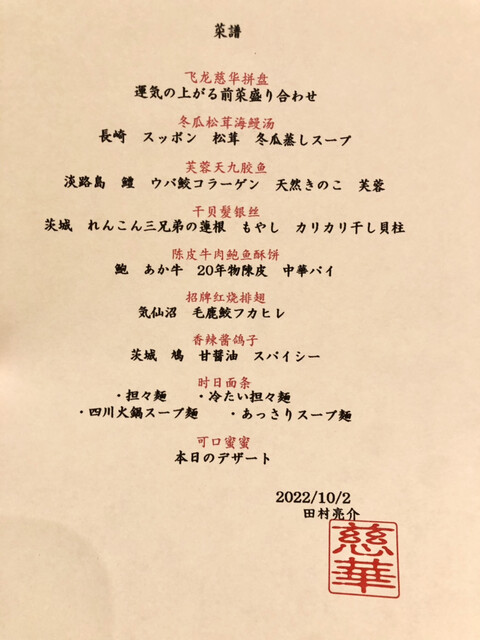 菜譜
飞龙慈华拼盘
運気の上がる前菜盛り合わせ
冬瓜松茸海鳗汤
長崎　スッポン　松茸　冬瓜蒸しスープ
芙蓉天九胶鱼
淡路島　鱧　ウバ鮫コラーゲン　天然きのこ　芙蓉
干贝髮银丝
茨城　れんこん三兄弟の蓮根　もやし　カリカリ干し貝柱
陈皮牛肉鲍鱼酥饼
鮑　あか牛　20年物陳皮　中華パイ
招牌红烧排翅
気仙沼　毛鹿鮫フカヒレ
香辣酱鸽子
茨城　鳩　甘醤油　スパイシー
时日面条
・担々麺　・冷たい担々麺
・四川火鍋スープ麺　・あっさりスープ麺
可口蜜蜜
本日のデザート
2022/10/2
田村亮介
慈華